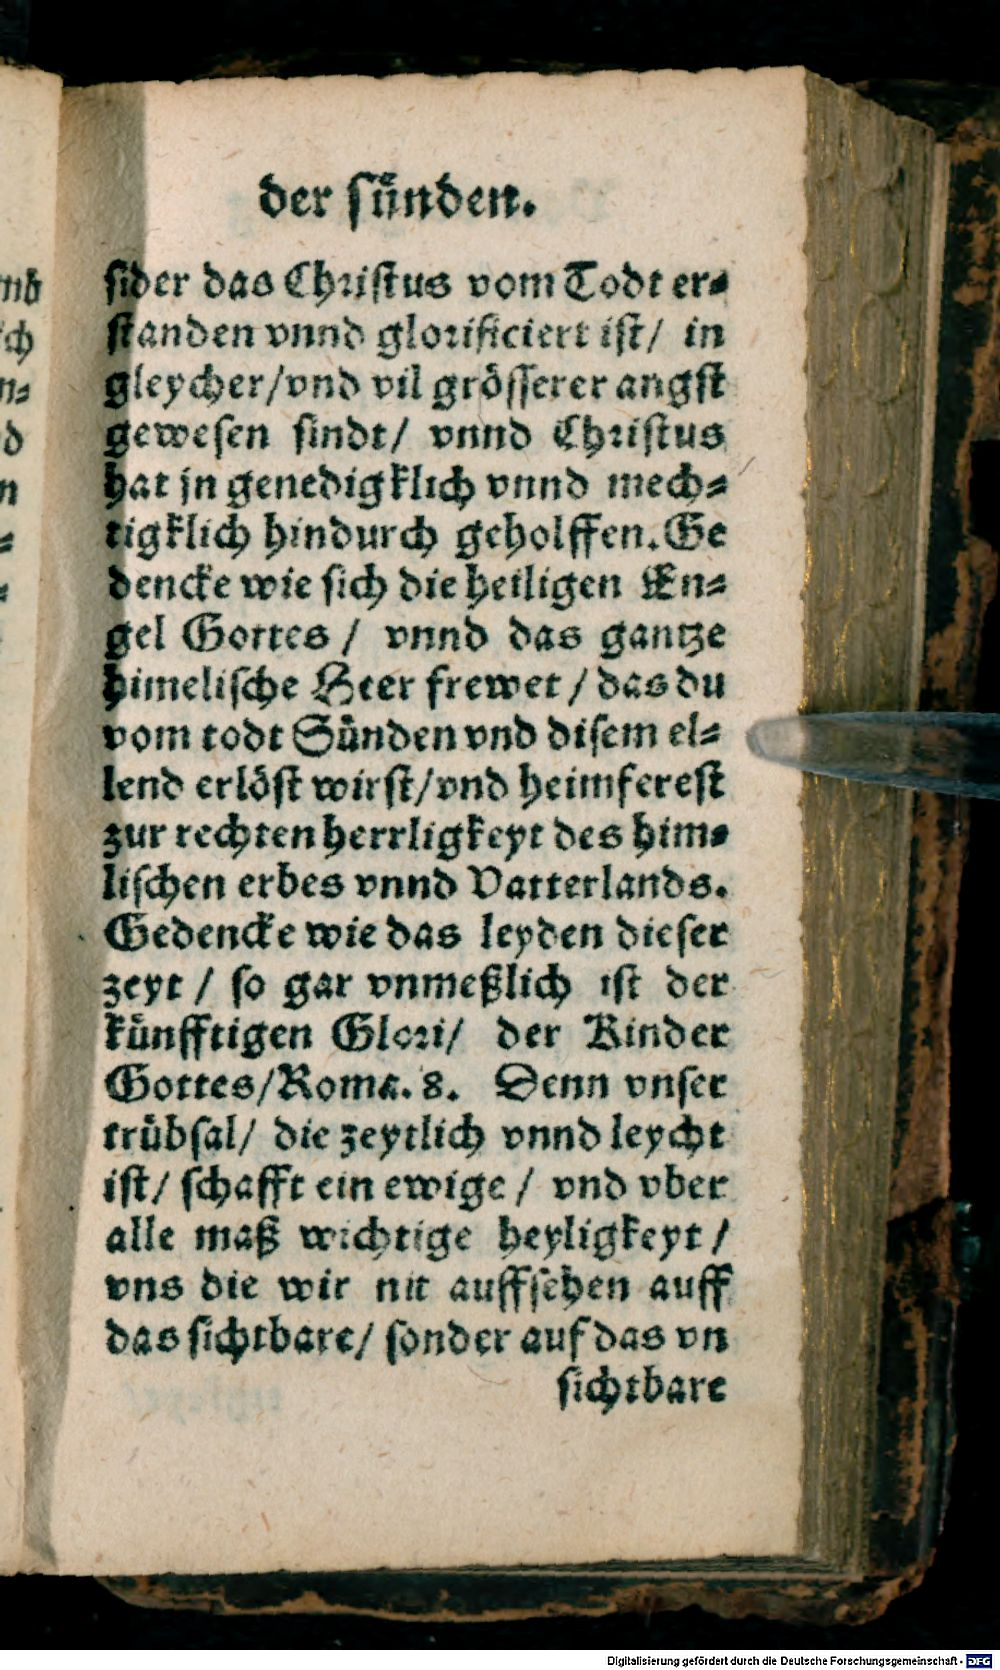 der sünden.
sider das Christus vom Todt er-
standen vnnd glorificiert ist/ in
gleycher/vnd vil grösserer angst
gewesen sindt/ vnnd Christus
hat jn genedigklich vnnd mech-
tigklich hindurch geholffen. Ge
dencke wie sich die heiligen En-
gel Gottes / vnnd das gantze
himelische Heer frewet / das du
vom todt Sünden vnd disem el-
lend erlöst wirst/vnd heimferest
zur rechten herrligkeyt des him-
lischen erbes vnnd Vatterlands.
Gedencke wie das leyden dieser
zeyt / so gar vnmeßlich ist der
künfftigen Glori/ der Kinder
Gottes/Roma. 8. Denn vnser
trübsal/ die zeytlich vnnd leycht
ist/ schafft ein ewige / vnd vber
alle maß wichtige heyligkeyt /
vns die wir nit auffsehen auff
das sichtbare/ sonder auf das vn
sichtbare
Digitalisierung gefördert durch die Deutsche Forschungsgemeinschaft - DFG